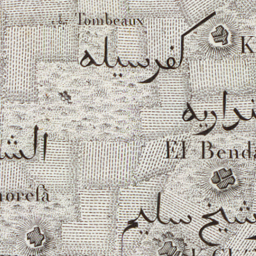 Tombeaux
كفر سيله
K
نداريه
El Benda
الش
noresà
شيخ سليم